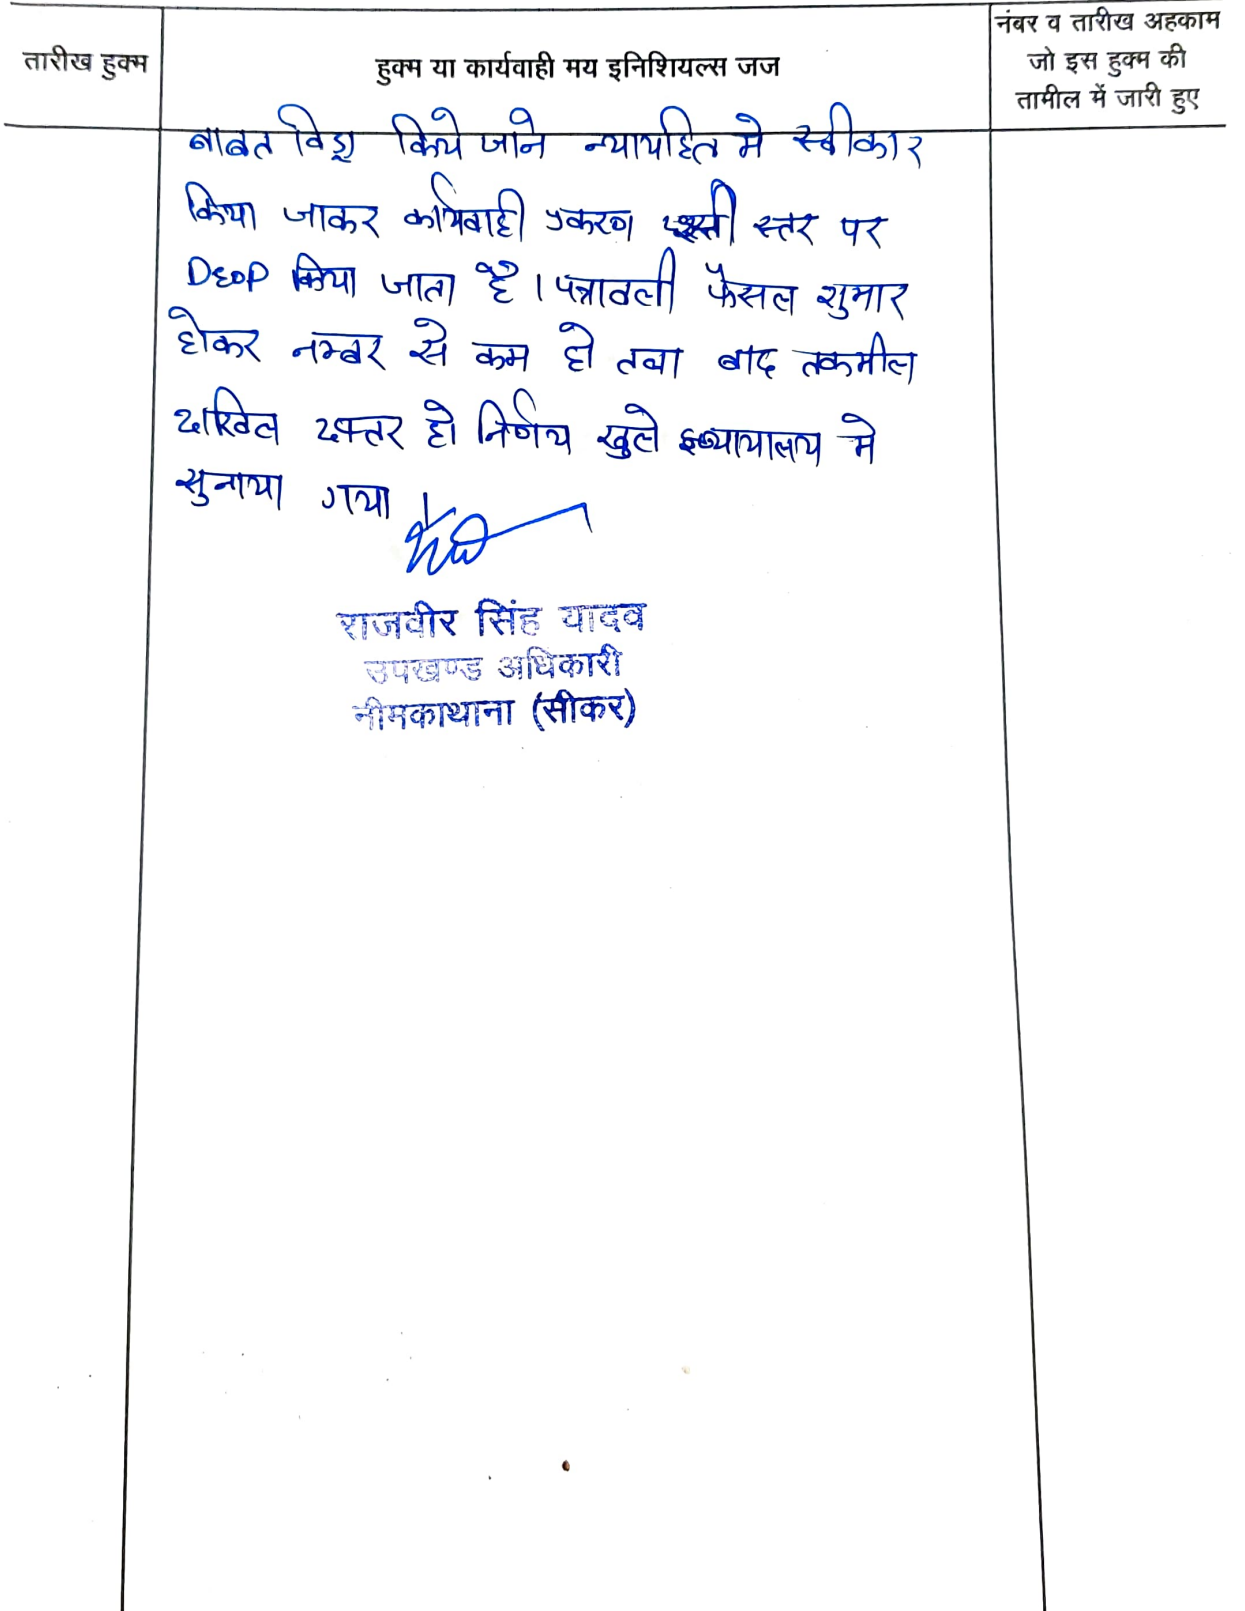 तारीख हुक्म
हुक्म या कार्यवाही मय इनिशियल्स जज
नंबर व तारीख अहकाम
जो इस हुक्म की
तामील में जारी हुए
बाबत किये जाने न्यायहित मे स्वीकार
किया जाकर कार्यवाही प्रकरण स्तर पर
DROP किया जाता है । पत्रावली फैसल शुमार
होकर नम्बर से कम हो तथा बाद तकमील
दाखिल दफ्तर हो निर्णय खुले न्यायालय मे
सुनाया गया
राजवीर सिंह यादव
उपखण्ड अधिकारी
नीमकाथाना (सीकर)